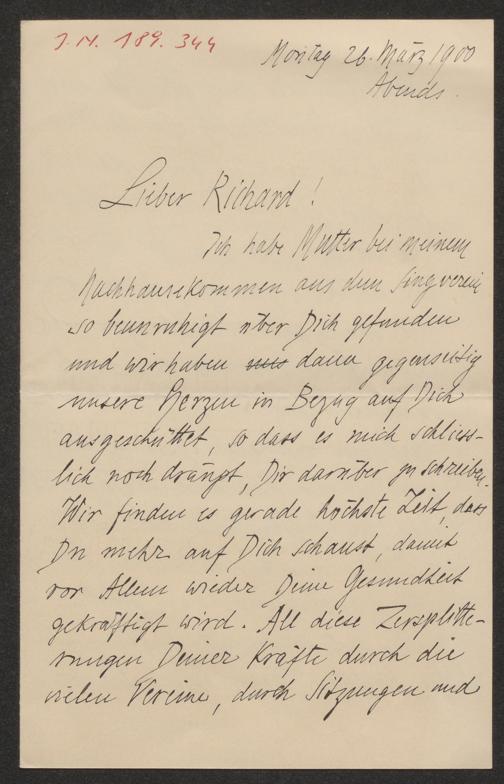 J. N. 189.344
Montag 26. März 1900
Abends.
Lieber Richard!
Ich habe Mutter bei meinem
Nachhausekommen aus dem Singverein
so beunruhigt über Dich gefunden
und wir haben uns dann gegenseitig
unsere Herzen in Bezug auf Dich
ausgeschüttet, so dass es mich schliess-
lich noch drängt, Dir darüber zu schreiben.
Wir finden es gerade höchste Zeit, dass
Du mehr auf Dich schaust, damit
vor Allem wieder Deine Gesundheit
gekräftigt wird. All diese Zersplitte-
rungen Deiner Kräfte durch die
vielen Vereine, durch Sitzungen und